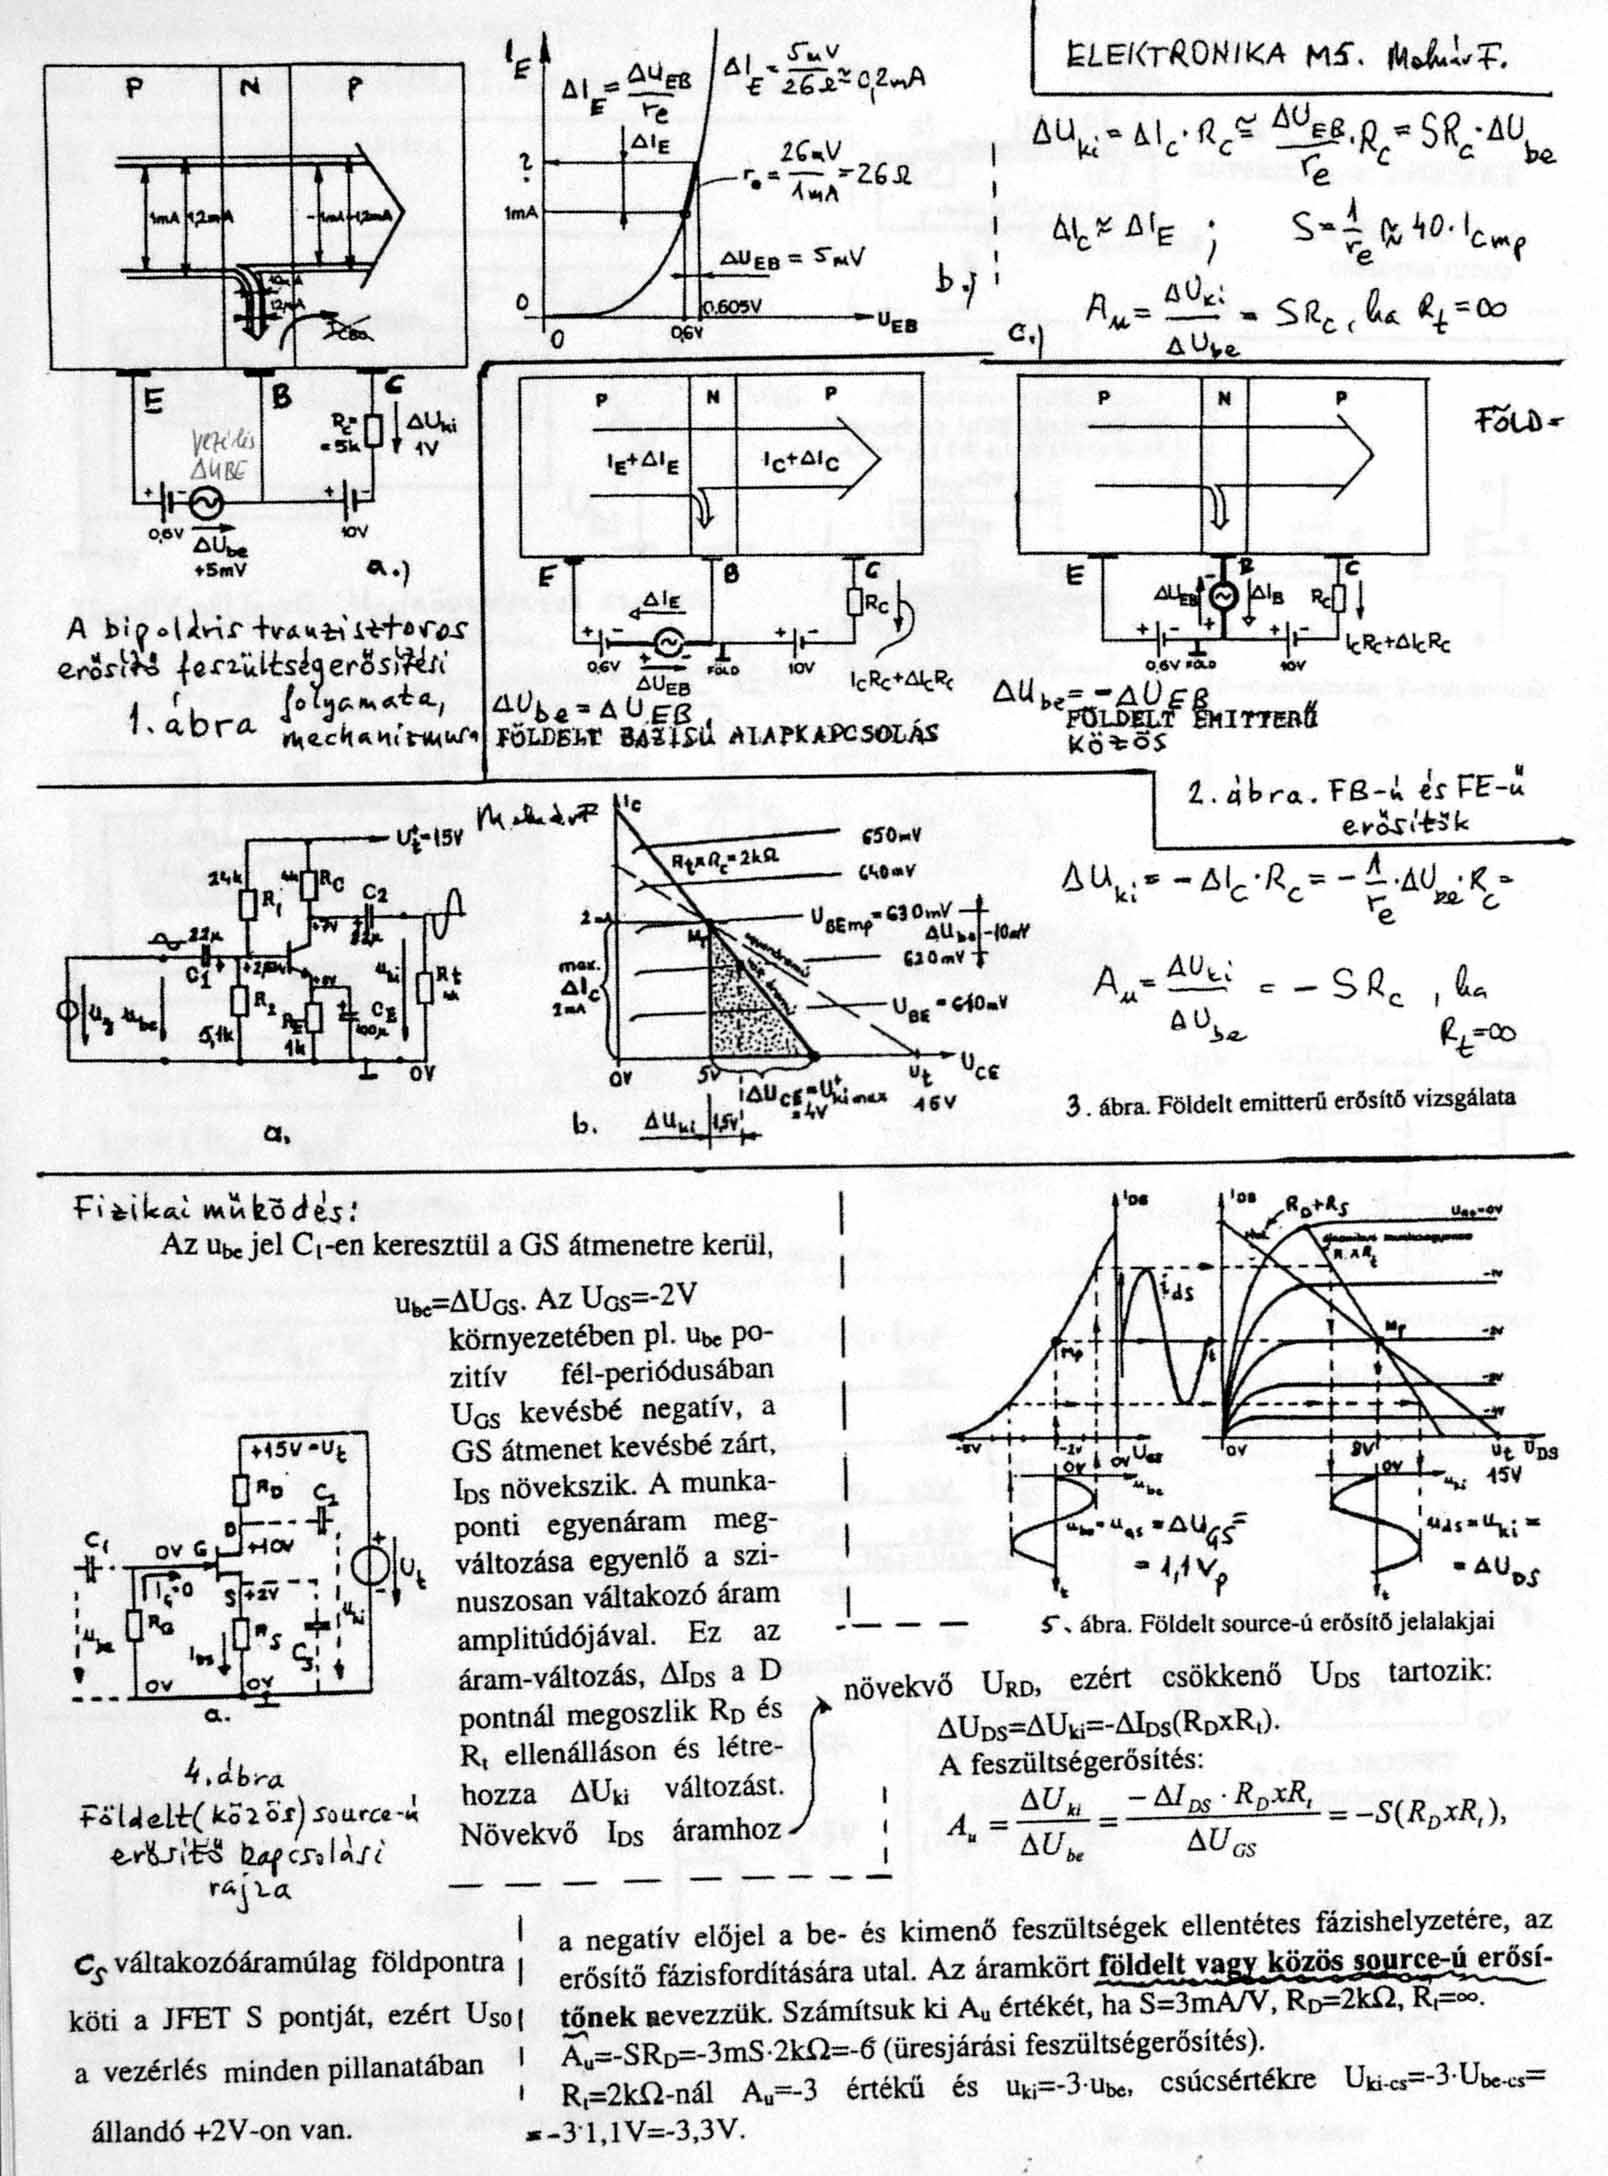 ELEKTRONIKA M5. Molnár F.
P N P
1mA 1,2mA
E B C
RC=
=5k
ΔUki
1V
vezérlés
ΔUBE
+ - + -
0,6V 10V
ΔUbe
+5mV
a.)
A bipoláris tranzisztoros
erősítő feszültségerősítési
folyamata,
1. ábra mechanizmusa
IE
ΔIE = ΔUEB / re
ΔIE = 5mV / 26Ω ≈ 0,2mA
ΔIE
?
re = 26mV / 1mA = 26Ω
1mA
ΔUEB = 5mV
0
0 0,6V 0,605V UEB
b.)
ΔUki = ΔIC · RC ≅ ΔUEB / re · RC = SRC · ΔUbe
ΔIC ≈ ΔIE ; S = 1 / re ≈ 40 · ICmp
Au = ΔUki / ΔUbe = SRC, ha Rt = ∞
c.)
P N P
IE+ΔIE IC+ΔIC
E B C
ΔIE
RC
+ - + -
0,6V FÖLD 10V
ΔUEB
ICRC+ΔICRC
ΔUbe = ΔUEB
FÖLDELT BÁZISÚ ALAPKAPCSOLÁS
P N P
FÖLD=
E B C
ΔUEB ΔIB RC
0,6V FÖLD 10V
ICRC+ΔICRC
ΔUbe = -ΔUEB
FÖLDELT EMITTERŰ
KÖZÖS
2. ábra. FB-ú és FE-ű
erősítők
Ut+=15V
24k R1
RC
C2
+7V
22μ
22μ
C1
R2
5,1k
RE
1k
CE
100μ
uki
Rt
ug ube
0V
a.
Molnár F
IC
RtxRC=2kΩ
650mV
640mV
UBEmp=630mV
ΔUbe -10mV
620mV
UBE=610mV
2mA
Mp
max.
ΔIC
2mA
0V 5V Ut UCE
15V
ΔUCE=U+kimax
=4V
ΔUki 1,5V
b.
ΔUki = -ΔIC · RC = -1 / re · ΔUbe · RC =
Au = ΔUki / ΔUbe = -SRC, ha
Rt=∞
3. ábra. Földelt emitterű erősítő vizsgálata
Fizikai működés:
Az ube jel C1-en keresztül a GS átmenetre kerül,
ube=ΔUGS. Az UGS=-2V
környezetében pl. ube po-
zitív fél-periódusában
UGS kevésbé negatív, a
GS átmenet kevésbé zárt,
IDS növekszik. A munka-
ponti egyenáram meg-
változása egyenlő a szi-
nuszosan váltakozó áram
amplitúdójával. Ez az
áram-változás, ΔIDS a D
pontnál megoszlik RD és
Rt ellenálláson és létre-
hozza ΔUki változást.
Növekvő IDS áramhoz
+15V=Ut
RD
C2
D
+10V
C1
0V G
IG=0
S +2V
RG
RS
IDS
CS
ube
uki
Ut
0V 0V
a.
4. ábra
Földelt (közös) source-ú
erősítő kapcsolási
rajza
IDS
ids
Mp
-2V 0V UGS
0V ube
t
ube=ugs=ΔUGS=
=1,1Vp
IDS
RD+RS
UGS=0V
-1V
Mp
0V 8V Ut UDS
15V
0V uki
uds=uki=
=ΔUDS
t
5. ábra. Földelt source-ú erősítő jelalakjai
növekvő URD, ezért csökkenő UDS tartozik:
ΔUDS=ΔUki=-ΔIDS(RDxRt).
A feszültségerősítés:
Au = ΔUki / ΔUbe = -ΔIDS · RDxRt / ΔUGS = -S(RDxRt),
CS váltakozóáramúlag földpontra
köti a JFET S pontját, ezért US0
a vezérlés minden pillanatában
állandó +2V-on van.
a negatív előjel a be- és kimenő feszültségek ellentétes fázishelyzetére, az
erősítő fázisfordítására utal. Az áramkört földelt vagy közös source-ú erősí-
tőnek nevezzük. Számítsuk ki Au értékét, ha S=3mA/V, RD=2kΩ, Rt=∞.
Au=-SRD=-3mS·2kΩ=-6 (üresjárási feszültségerősítés).
Rt=2kΩ-nál Au=-3 értékű és uki=-3·ube, csúcsértékre Uki-cs=-3·Ube-cs=
=-3·1,1V=-3,3V.